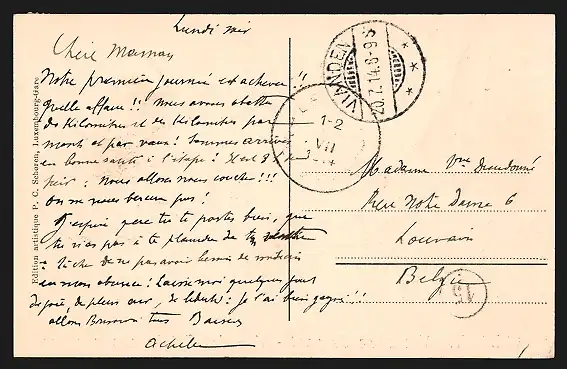 Lundi soir
Chère Maman
Notre première journée est achevée !!
quelle affaire !! nous avons abattu
des Kilomètres et des Kilomètres par
monts et par vaux ! Sommes arrivés
en bonne santé à l'étape ! Il est 8 h
soir : nous allons nous coucher !!!
On ne nous bercera pas !
J'espère que tu te portes bien, que
tu n'as pas à te plaindre de
tâche de ne pas avoir besoin de médecin
en mon absence ! Laisse moi quelques jours
de joie, de plein air, de liberté : je l'ai bien gagné !!
allons Bonsoir tous Baisers
Achille
Edition artistique P. C. Schoren, Luxembourg-Gare
VIANDEN
20.7.14.8-9 S
1-2
VII
Madame Vve Dieudonné
Rue Notre Dame 6
Louvain
Belgie